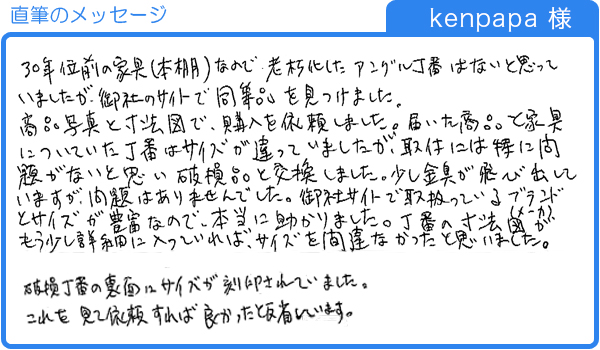 直筆のメッセージ
kenpapa 様
30年位前の家具(本棚)なので、老朽化したアングル丁番はないと思って
いましたが、御社のサイトで同等品を見つけました。
商品写真と寸法図で、購入を依頼しました。届いた商品と家具
についていた丁番はサイズが違っていましたが、取付には特に問
題がないと思い破損品と交換しました。少し金具が飛び出して
いますが、問題はありませんでした。御社サイトで取扱っているブランド
(メーカ)
とサイズが豊富なので、本当に助かりました。丁番の寸法図が
もう少し詳細に入っていれば、サイズを間違なかったと思いました。
破損丁番の裏面にサイズが刻印されていました。
これを見て依頼すれば良かったと反省しています。